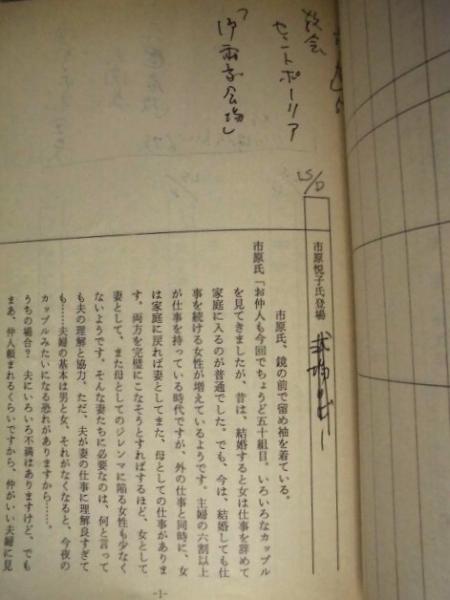 教会
セントポーリア
市原悦子氏登場
市原氏、鏡の前で留め袖を着ている。
市原氏「お仲人も今回でちょうど五十組目。いろいろなカップル
を見てきましたが、昔は、結婚すると女は仕事を辞めて
家庭に入るのが普通でした。でも、今は、結婚しても仕
事を続ける女性が増えているようです。主婦の六割以上
が仕事を持っている時代ですが、外の仕事と同時に、女
は家庭に戻れば妻としてまた、母としての仕事がありま
す。両方を完璧にこなそうとすればするほど、女として
妻として、また母としてのジレンマに陥る女性も少なく
ないようです。そんな妻たちに必要なのは、何と言って
も夫の理解と協力。ただ、夫が妻の仕事に理解良すぎて
も……夫婦の基本は男と女、それがなくなると、今夜の
カップルみたいになる恐れがありますから……。
うちの場合？　夫にいろいろ不満はありますけど、でも
まあ、仲人頼まれるくらいですから、仲がいい夫婦に見
-1-